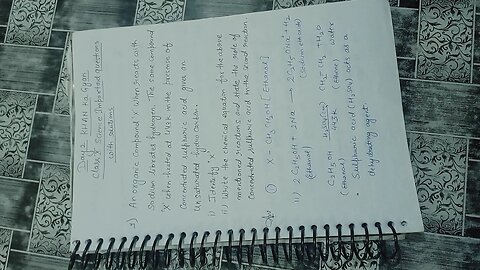 Day 2 KHAN Ka Gyan
Class X Science important questions
with solutions
1) An organic compound X when reacts with
Sodium liberates hydrogen. The same compound
'X' when heated at 443K in the presence of
Concentrated sulphuric acid gives an
Unsaturated hydrocarbon.
i) Identify 'X'
ii) Write the chemical equation for the above
mentioned reactions and state the role of
concentrated sulphuric acid in the second reaction.
Ans ① X - CH3CH2OH [Ethanol]
iii) 2C2H5OH + 2Na → 2C2H5ONa + H2
(Ethanol) (Sodium ethoxide)
C2H5OH H2SO4 443K CH2=CH2 + H2O
(Ethanol) (Ethene) water
• Sulphuric acid (H2SO4) acts as a
dehydrating agent.